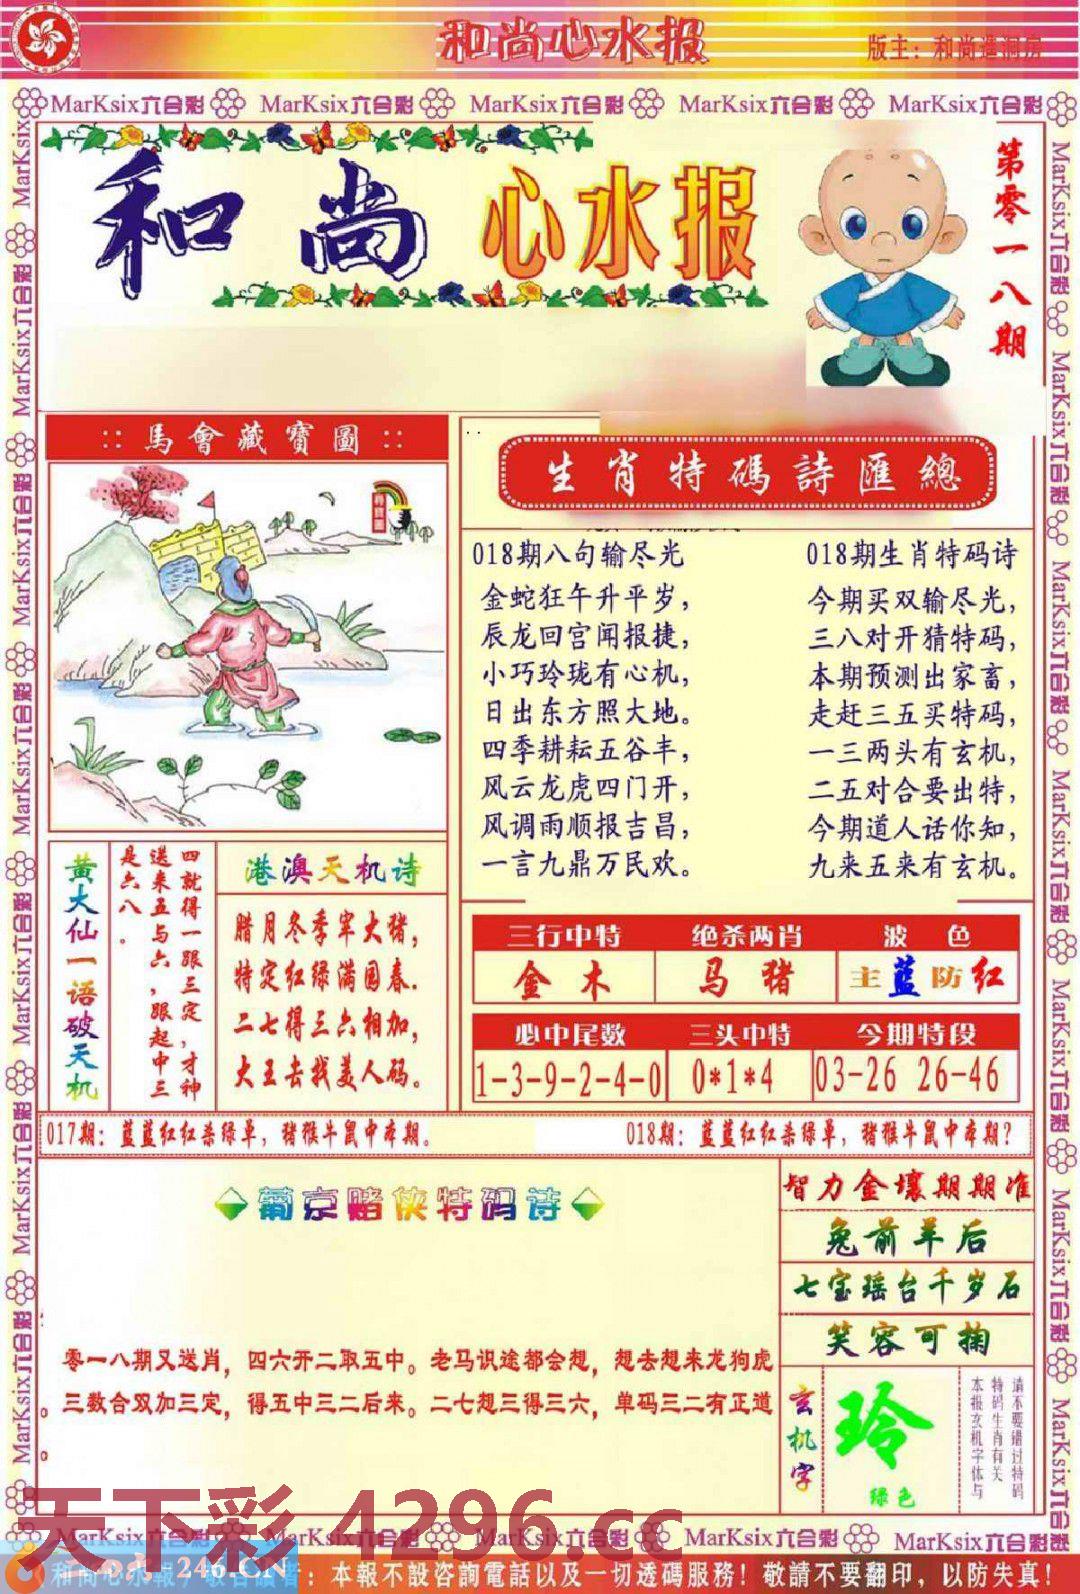 和尚心水报
版主：和尚进洞房
MarKsix六合彩 MarKsix六合彩 MarKsix六合彩 MarKsix六合彩 MarKsix六合彩
和尚心水报
第零一八期
::馬會藏寶圖::
生肖特碼詩匯總
018期八句输尽光
金蛇狂午升平岁，
辰龙回宫闻报捷，
小巧玲珑有心机，
日出东方照大地。
四季耕耘五谷丰，
风云龙虎四门开，
风调雨顺报吉昌，
一言九鼎万民欢。
018期生肖特码诗
今期买双输尽光，
三八对开猜特码，
本期预测出家畜，
走赶三五买特码，
一三两头有玄机，
二五对合要出特，
今期道人话你知，
九来五来有玄机。
黄大仙一语破天机
四就得一跟三定，才神
送来五与六，跟起中三
是六八。
港澳天机诗
腊月冬季宰大猪，
特定红绿满园春.
二七得三六相加，
大王去找美人码。
三行中特 绝杀两肖 波色
金木 马猪 主蓝防红
必中尾数 三头中特 今期特段
1-3-9-2-4-0 0*1*4 03-26 26-46
017期：蓝蓝红红杀绿单，猪猴牛鼠中本期。
018期：蓝蓝红红杀绿单，猪猴牛鼠中本期？
葡京赌侠特码诗
零一八期又送肖，四六开二取五中。老马识途都会想，想去想来龙狗虎
三数合双加三定，得五中三二后来。二七想三得三六，单码三二有正道
智力金壤期期准
兔前羊后
七宝瑶台千岁石
笑容可掬
玄机字
玲
绿色
请不要错过特码
特码生肖有关
本报玄机字体与
天下彩 4296.cc
MarKsix六合彩 MarKsix六合彩 MarKsix六合彩 MarKsix六合彩 MarKsix六合彩
246.CN
：本報不設咨詢電話以及一切透碼服務！敬請不要翻印，以防失真！